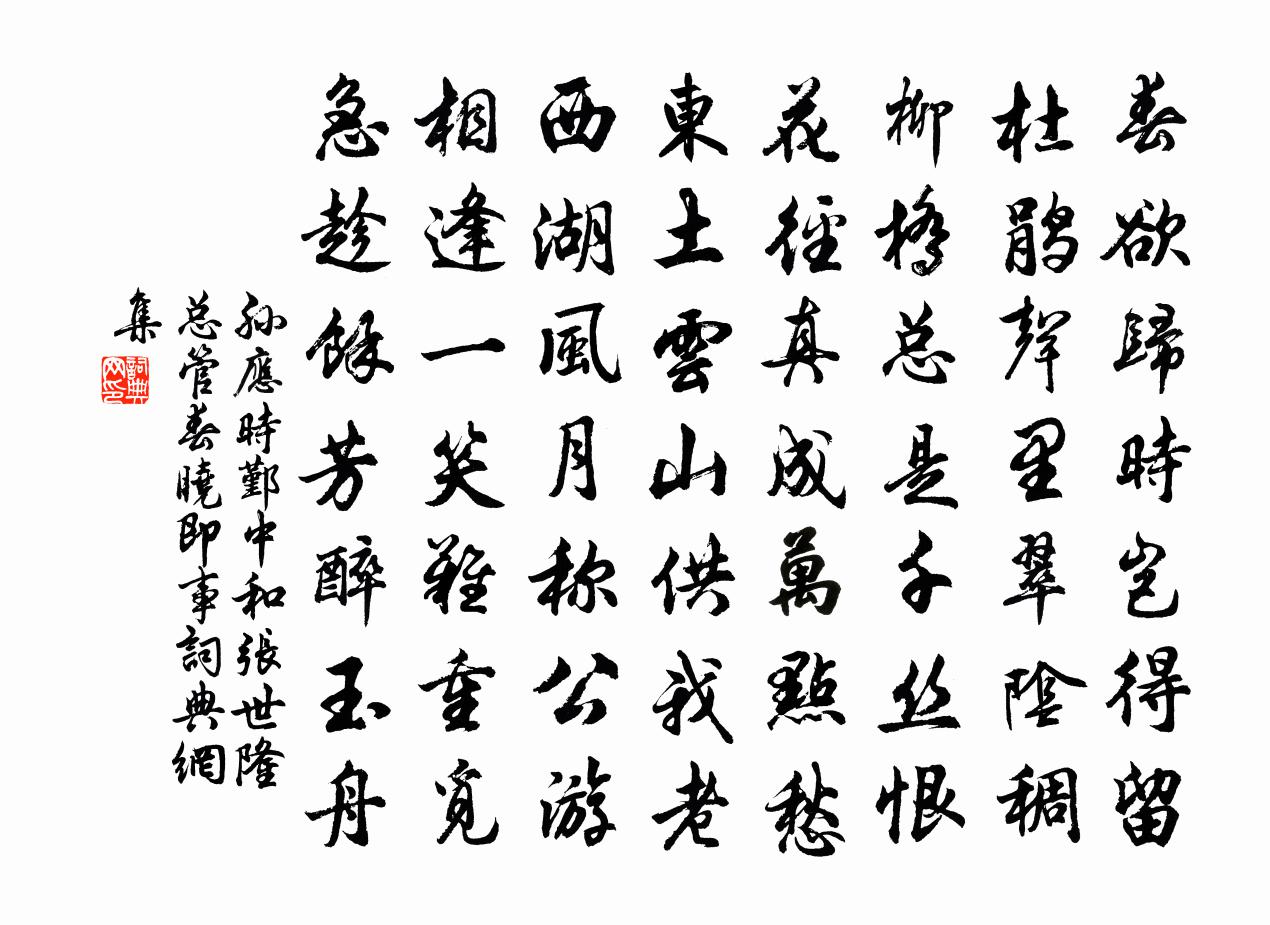 春欲歸時岂得留
杜鹃聲里翠陰稠
柳橋总是千丝恨
花徑真成萬點愁
東土雲山供我老
西湖風月称公游
相逢一笑難重覓
急趁餘芳醉玉舟
孙應時鄞中和張世隆
总管春曉即事詞典網
集
詞典网印